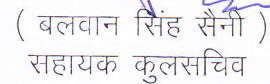 ( बलवान सिंह सैनी )
सहायक कुलसचिव